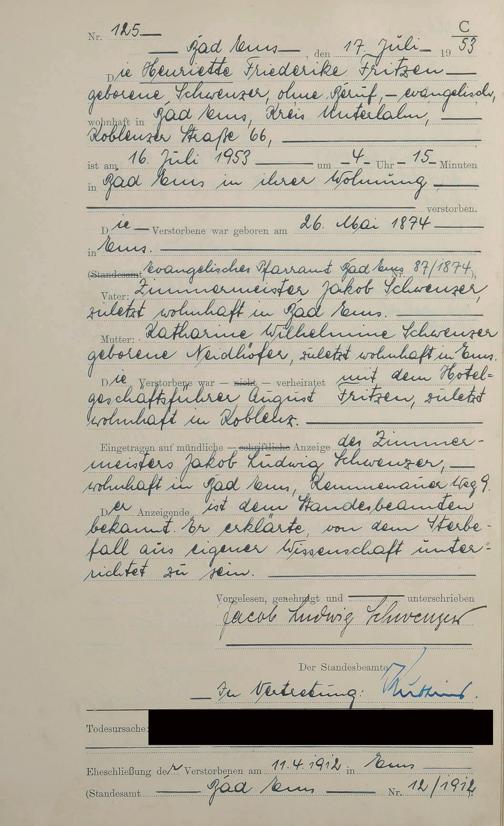 C
Nr. 125
Bad Ems, den 17. Juli 1953
Die Henriette Friederike Fritzen
geborene Schwenzer, ohne Beruf, – evangelisch,
wohnhaft in Bad Ems, Kreis Unterlahn,
Koblenzer Straße 66,
ist am 16. Juli 1953 um 4 Uhr 15 Minuten
in Bad Ems in ihrer Wohnung
verstorben.
Die Verstorbene war geboren am 26. Mai 1874
in Ems.
(Standesamt Evangelisches Pfarramt Bad Ems Nr. 87/1874),
Vater: Zimmermeister Jakob Schwenzer,
zuletzt wohnhaft in Bad Ems.
Mutter: Katharine Wilhelmine Schwenzer
geborene Neidhöfer, zuletzt wohnhaft in Ems.
Die Verstorbene war – nicht – verheiratet mit dem Hotel=
geschäftsführer August Fritzen, zuletzt
wohnhaft in Koblenz.
Eingetragen auf mündliche – schriftliche Anzeige des Zimmer-
meisters Jakob Ludwig Schwenzer,
wohnhaft in Bad Ems, Kemmenauer Weg 9.
Der Anzeigende ist dem Standesbeamten
bekannt. Er erklärte, von dem Sterbe-
fall aus eigener Wissenschaft unter-
richtet zu sein.
Vorgelesen, genehmigt und unterschrieben
Jacob Ludwig Schwenzer
Der Standesbeamte
In Vertretung:
Todesursache:
Eheschließung der Verstorbenen am 11.4.1912 in Ems
(Standesamt Bad Ems Nr. 12/1912